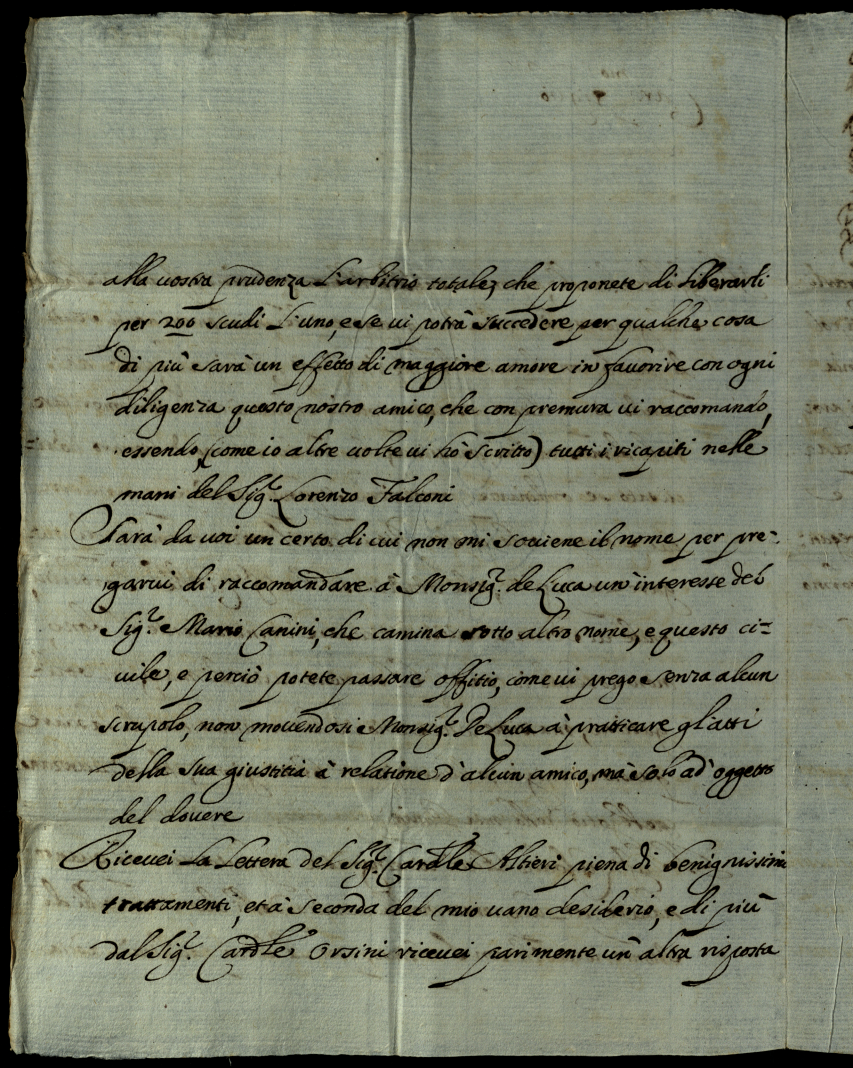 alla uostra prudenza L'arbitrio totale, che proponete di liberarli
per 200 scudi L'uno, e se ui potrà succedere per qualche cosa
di più sarà un effetto di maggiore amore in fauorire con ogni
diligenza questo nostro amico, che con premura ui raccomando,
essendo (come io altre uolte ui hò scritto) tutti i ricapiti nelle
mani del Sig.r Lorenzo Falconi
Sarà da uoi un certo di cui non mi souiene il nome per pre=
garui di raccomandare à Monsig.r de Luca un'interesse del
Sig.r Mario Canini, che camina sotto altro nome, e questo ci=
uile, e perciò potete passare offitio, come ui prego senza alcun
scrupolo, non mouendosi Monsig.r De Luca à pratticare gl'atti
della sua giustitia à relatione d'alcun amico, mà solo ad oggetto
del douere
Riceuei La Lettera del Sig.r Cardle Altieri piena di benignissimi
trattamenti, et à seconda del mio uano desiderio, e di più
dal Sig.r Cardle Orsini riceuei parimente un'altra risposta